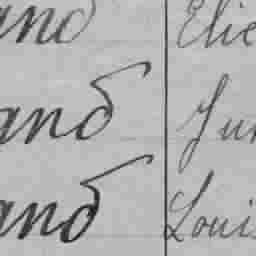 and Elie
and Jun
and Louis